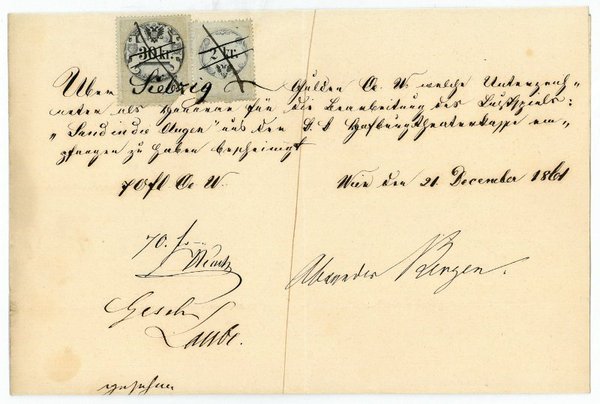 30 kr.
2 kr.
Über Siebzig Gulden Oe. W. welche Unterzeich=
neter als Honorar für die Bearbeitung des Lustspiels:
„Sand in die Augen“ aus der k. k. Hofburgtheaterkasse em=
pfangen zu haben bescheinigt
70 fl. Oe. W.
Wien den 21. December 1861
70. f.
Alexander Bergen.
Gesehn
Laube.
gesehen